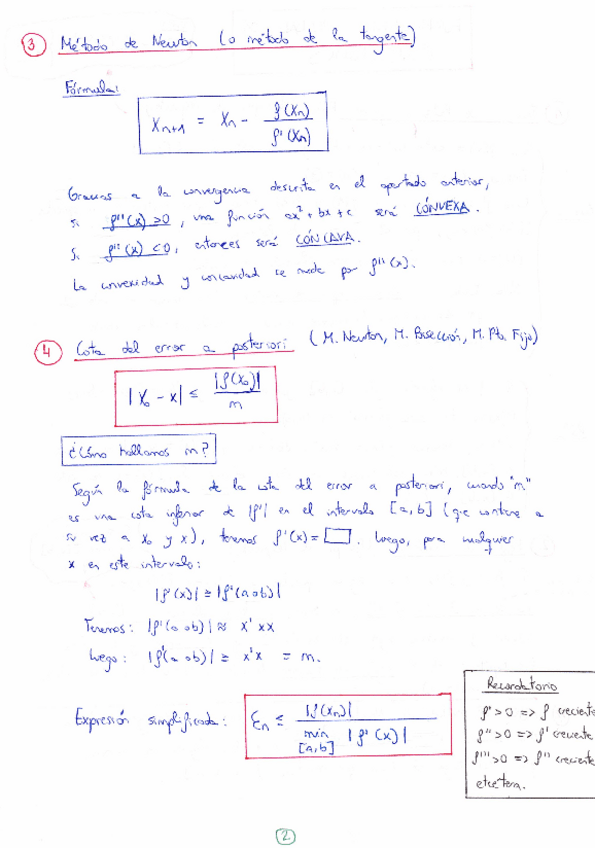 3 Método de Newton (o método de la tangente)
Fórmula:
Xn+1 = Xn - f(Xn) / f'(Xn)
Gracias a la convergencia descrita en el apartado anterior,
si f''(x) > 0, una función ax² + bx + c será CÓNVEXA.
Si f''(x) < 0, entonces será CÓNCAVA.
La convexidad y concavidad se mide por f''(x).
4 Cota del error a posteriori (M. Newton, M. Bisección, M. Pto. Fijo)
|X₀ - x| ≤ |f(X₀)| / m
¿Cómo hallamos m?
Según la fórmula de la cota del error a posteriori, cuando "m"
es una cota inferior de |f'| en el intervalo [a, b] (que contiene a
su vez a X₀ y x), tenemos f'(x) = □. Luego, para cualquier
x en este intervalo:
|f'(x)| ≥ |f'(a o b)|
Tenemos: |f'(a o b)| ≈ x'xx
Luego: |f'(a o b)| ≥ x'x = m.
Expresión simplificada: εn ≤ |f(Xn)| / min [a,b] |f'(x)|
Recordatorio
f' > 0 => f creciente
f'' > 0 => f' creciente
f''' > 0 => f'' creciente
etcétera.
2